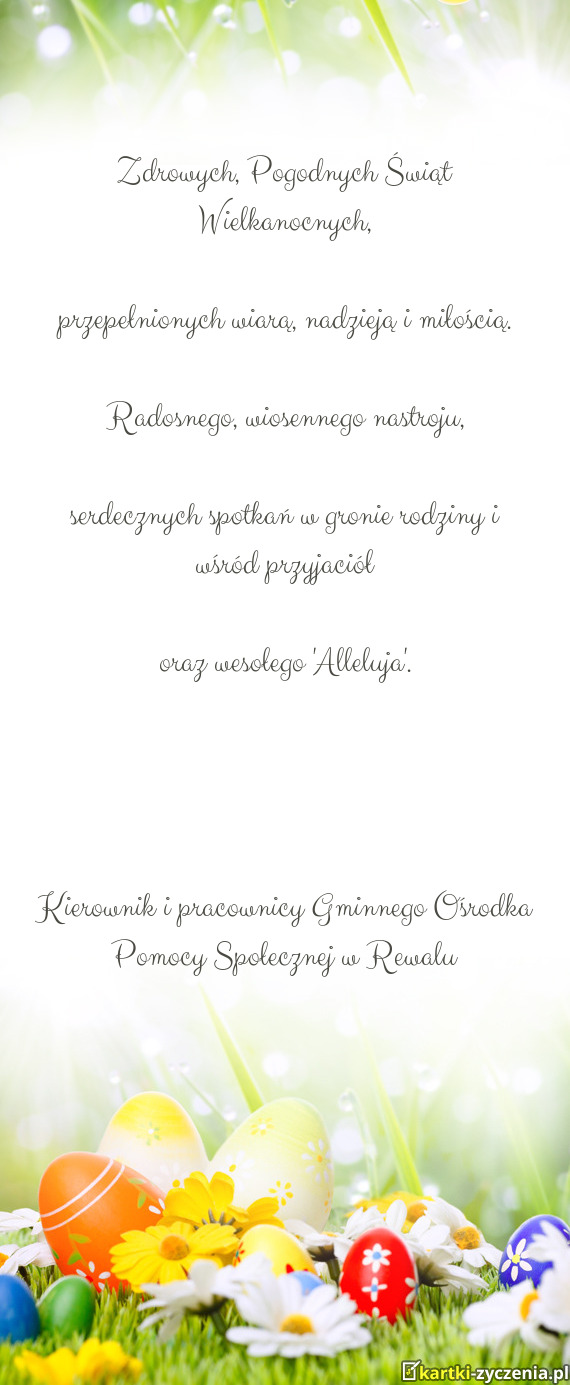 Zdrowych, Pogodnych Świąt
Wielkanocnych,
przepełnionych wiarą, nadzieją i miłością.
Radosnego, wiosennego nastroju,
serdecznych spotkań w gronie rodziny i
wśród przyjaciół
oraz wesołego 'Alleluja'.
Kierownik i pracownicy Gminnego Ośrodka
Pomocy Społecznej w Rewalu
kartki-zyczenia.pl